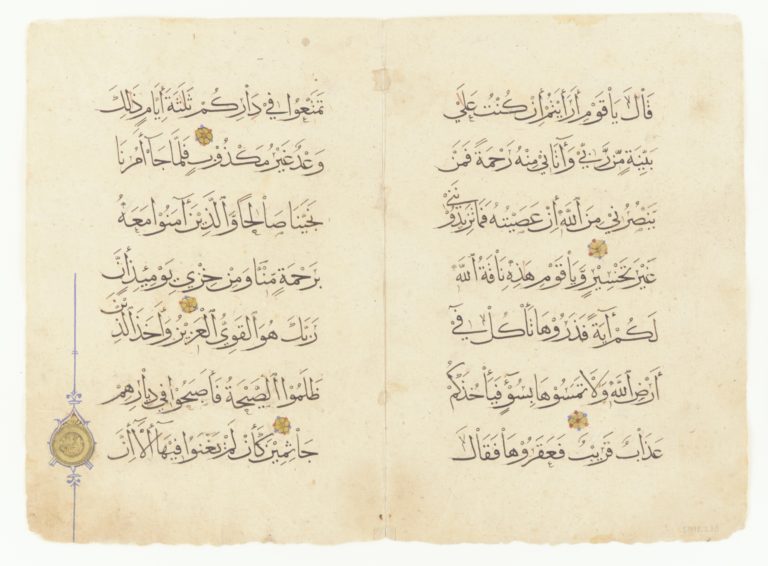 قَالَ يَا قَوْمِ أَرَأَيْتُمْ إِنْ كُنْتُ عَلَىٰ
بَيِّنَةٍ مِّن رَّبِّي وَآتَانِي مِنْهُ رَحْمَةً فَمَنْ
يَنْصُرُنِي مِنَ اللَّهِ إِنْ عَصَيْتُهُ فَمَا تَزِيدُونَنِي
غَيْرَ تَخْسِيرٍ وَيَا قَوْمِ هَذِهِ نَاقَةُ اللَّهِ
لَكُمْ آيَةً فَذَرُوهَا تَأْكُلْ فِي
أَرْضِ اللَّهِ وَلَا تَمَسُّوهَا بِسُوءٍ فَيَأْخُذَكُمْ
عَذَابٌ قَرِيبٌ فَعَقَرُوهَا فَقَالَ
تَمَتَّعُوا فِي دَارِكُمْ ثَلَثَةَ أَيَّامٍ ذَلِكَ
وَعْدٌ غَيْرُ مَكْذُوبٍ فَلَمَّا جَاءَ أَمْرُنَا
نَجَّيْنَا صَالِحًا وَالَّذِينَ آمَنُوا مَعَهُ
بِرَحْمَةٍ مِنَّا وَمِنْ خِزْيِ يَوْمِئِذٍ إِنَّ
رَبَّكَ هُوَ الْقَوِيُّ الْعَزِيزُ وَأَخَذَ الَّذِينَ
ظَلَمُوا الصَّيْحَةُ فَأَصْبَحُوا فِي دِيَارِهِمْ
جَاثِمِينَ كَأَنْ لَمْ يَغْنَوْا فِيهَا أَلَا إِنَّ